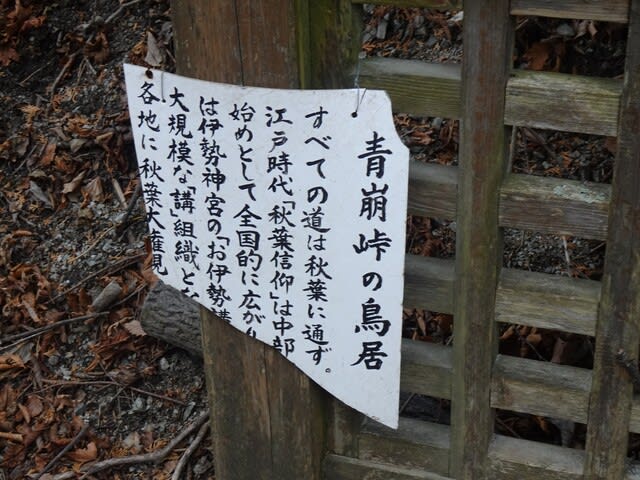 青崩峠の鳥居
すべての道は秋葉に通ず。
江戸時代「秋葉信仰」は中部
始めとして全国的に広がり
は伊勢神宮の「お伊勢講
大規模な「講」組織と
各地に秋葉大権現